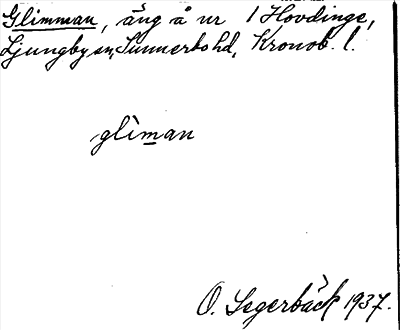 Glimman, äng å nr 1 Hovdinge,
Ljungby sn, Sunnerbo hd, Kronob. l.
glìman
O. Segerbäck 1937.